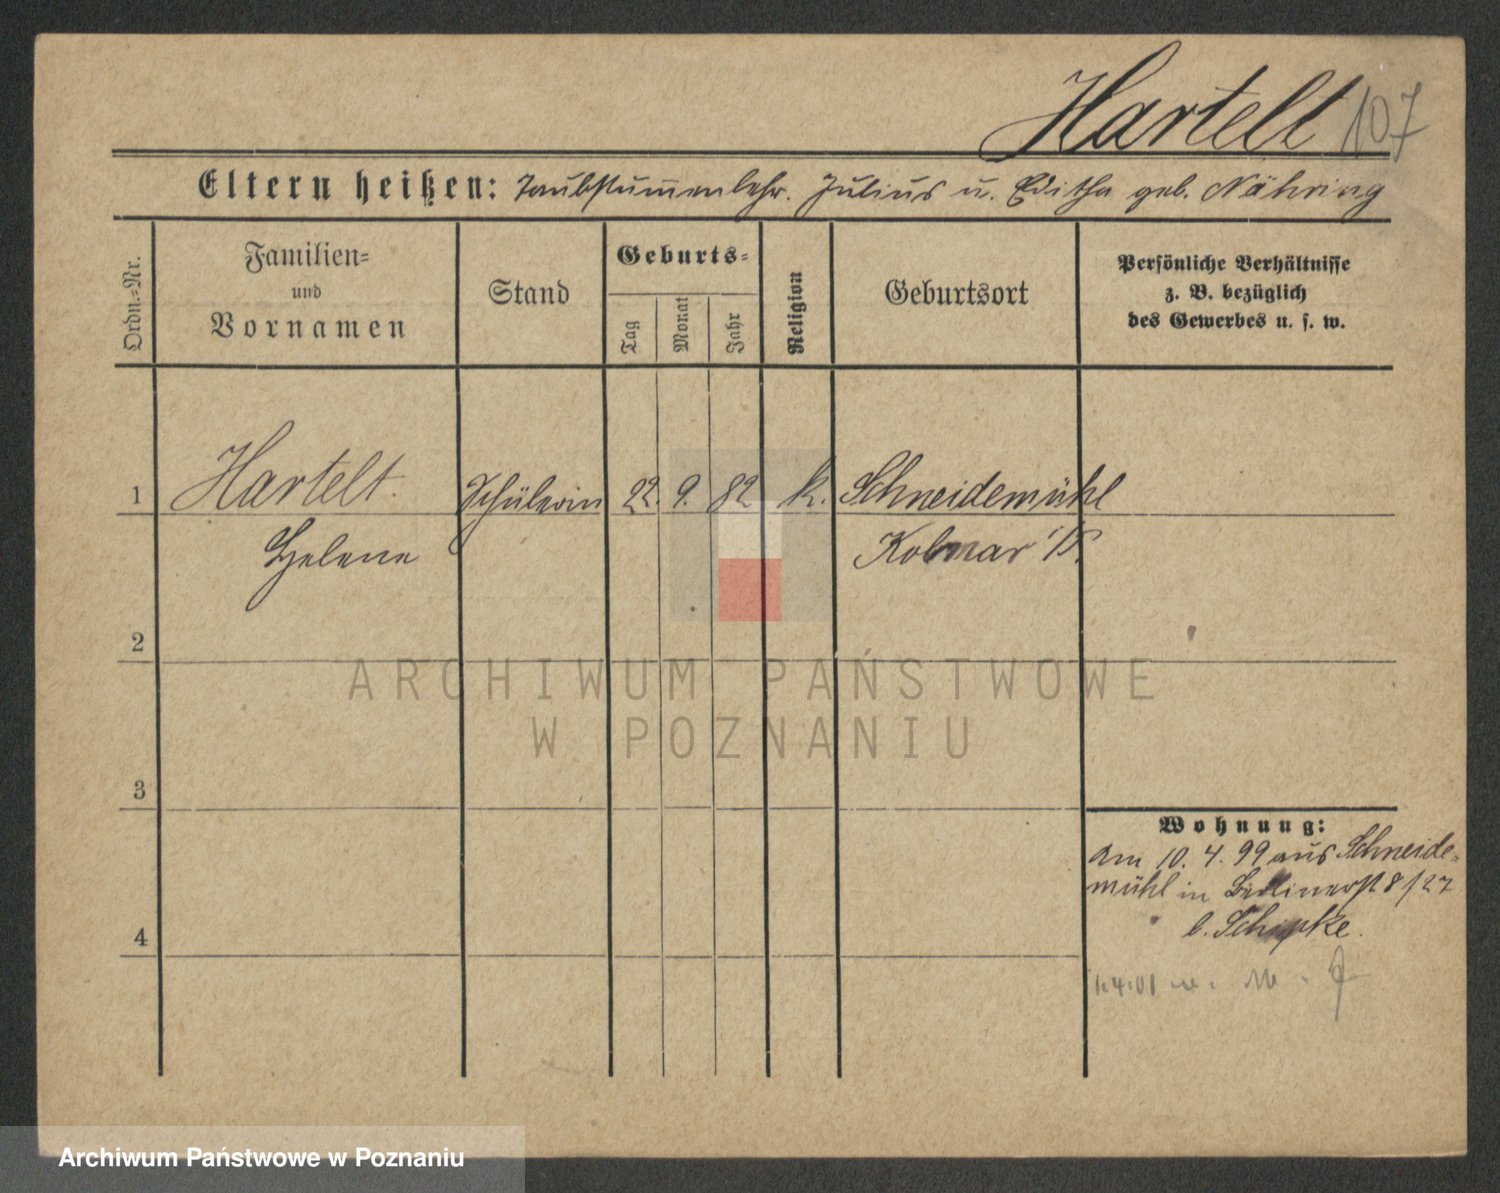 Hartelt 107
Eltern heißen: Taubstummenlehr. Julius u. Editha geb. Nähring
Ordn.-Nr.
Familien-
und
Vornamen
Stand
Geburts-
Tag
Monat
Jahr
Religion
Geburtsort
Persönliche Verhältnisse
z. B. bezüglich
des Gewerbes u. s. w.
1 Hartelt. Schülerin 22. 9. 82 k. Schneidemühl
Helene Kolmar i/P.
2
ARCHIWUM PAŃSTWOWE
W POZNANIU
3
Wohnung:
Am 10. 4. 99 aus Schneide-
mühl in Berlinerst 8/27
4
b. Schipke.
1.4.01
Archiwum Państwowe w Poznaniu